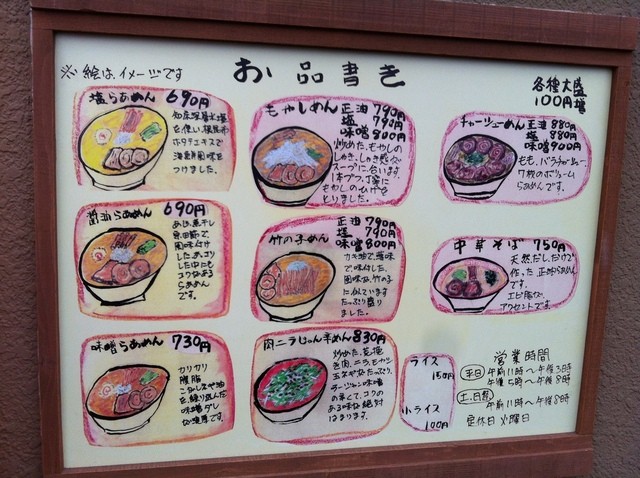 ※絵は、イメージです
お品書き
各種大盛
100円増
塩らあめん 690円
海鮮風味を
つけました。
もやしめん 正油 790円
塩 790円
味噌 800円
炒めた、もやしの
しゃき、しゃき感が
スープに合います。
1本づつ、丁寧に
もやしのひげを
とりました。
チャーシューめん 正油 880円
塩 880円
味噌 900円
もも、バラチャーシュー、
7枚のボリューム
らあめんです。
醤油らあめん 690円
風味付け
した、あっコリ
した中にも
コクがある
らあめん
です。
竹の子めん
正油 790円
塩 790円
味噌 800円
で、味付した、
風味な、竹の子
に似ています
たっぷり盛り
ました。
中華そば 750円
天然だしだけで
作った、正油らあめん
です。
エビ油が、
アクセントです。
味噌らあめん 730円
カリカリ
味噌ダレ
が濃厚です。
肉ニラじゅん辛めん 830円
き肉、ニラ、モヤシ
玉ネギがたっぷり、
ラージャン味噌
の辛さで、コクの
ある味な絶対
はまります。
ライス
150円
小ライス
100円
営業時間
平日 午前11時〜午後3時
午後5時〜午後8時
土、日、祭
午前11時〜午後8時
定休日 火曜日